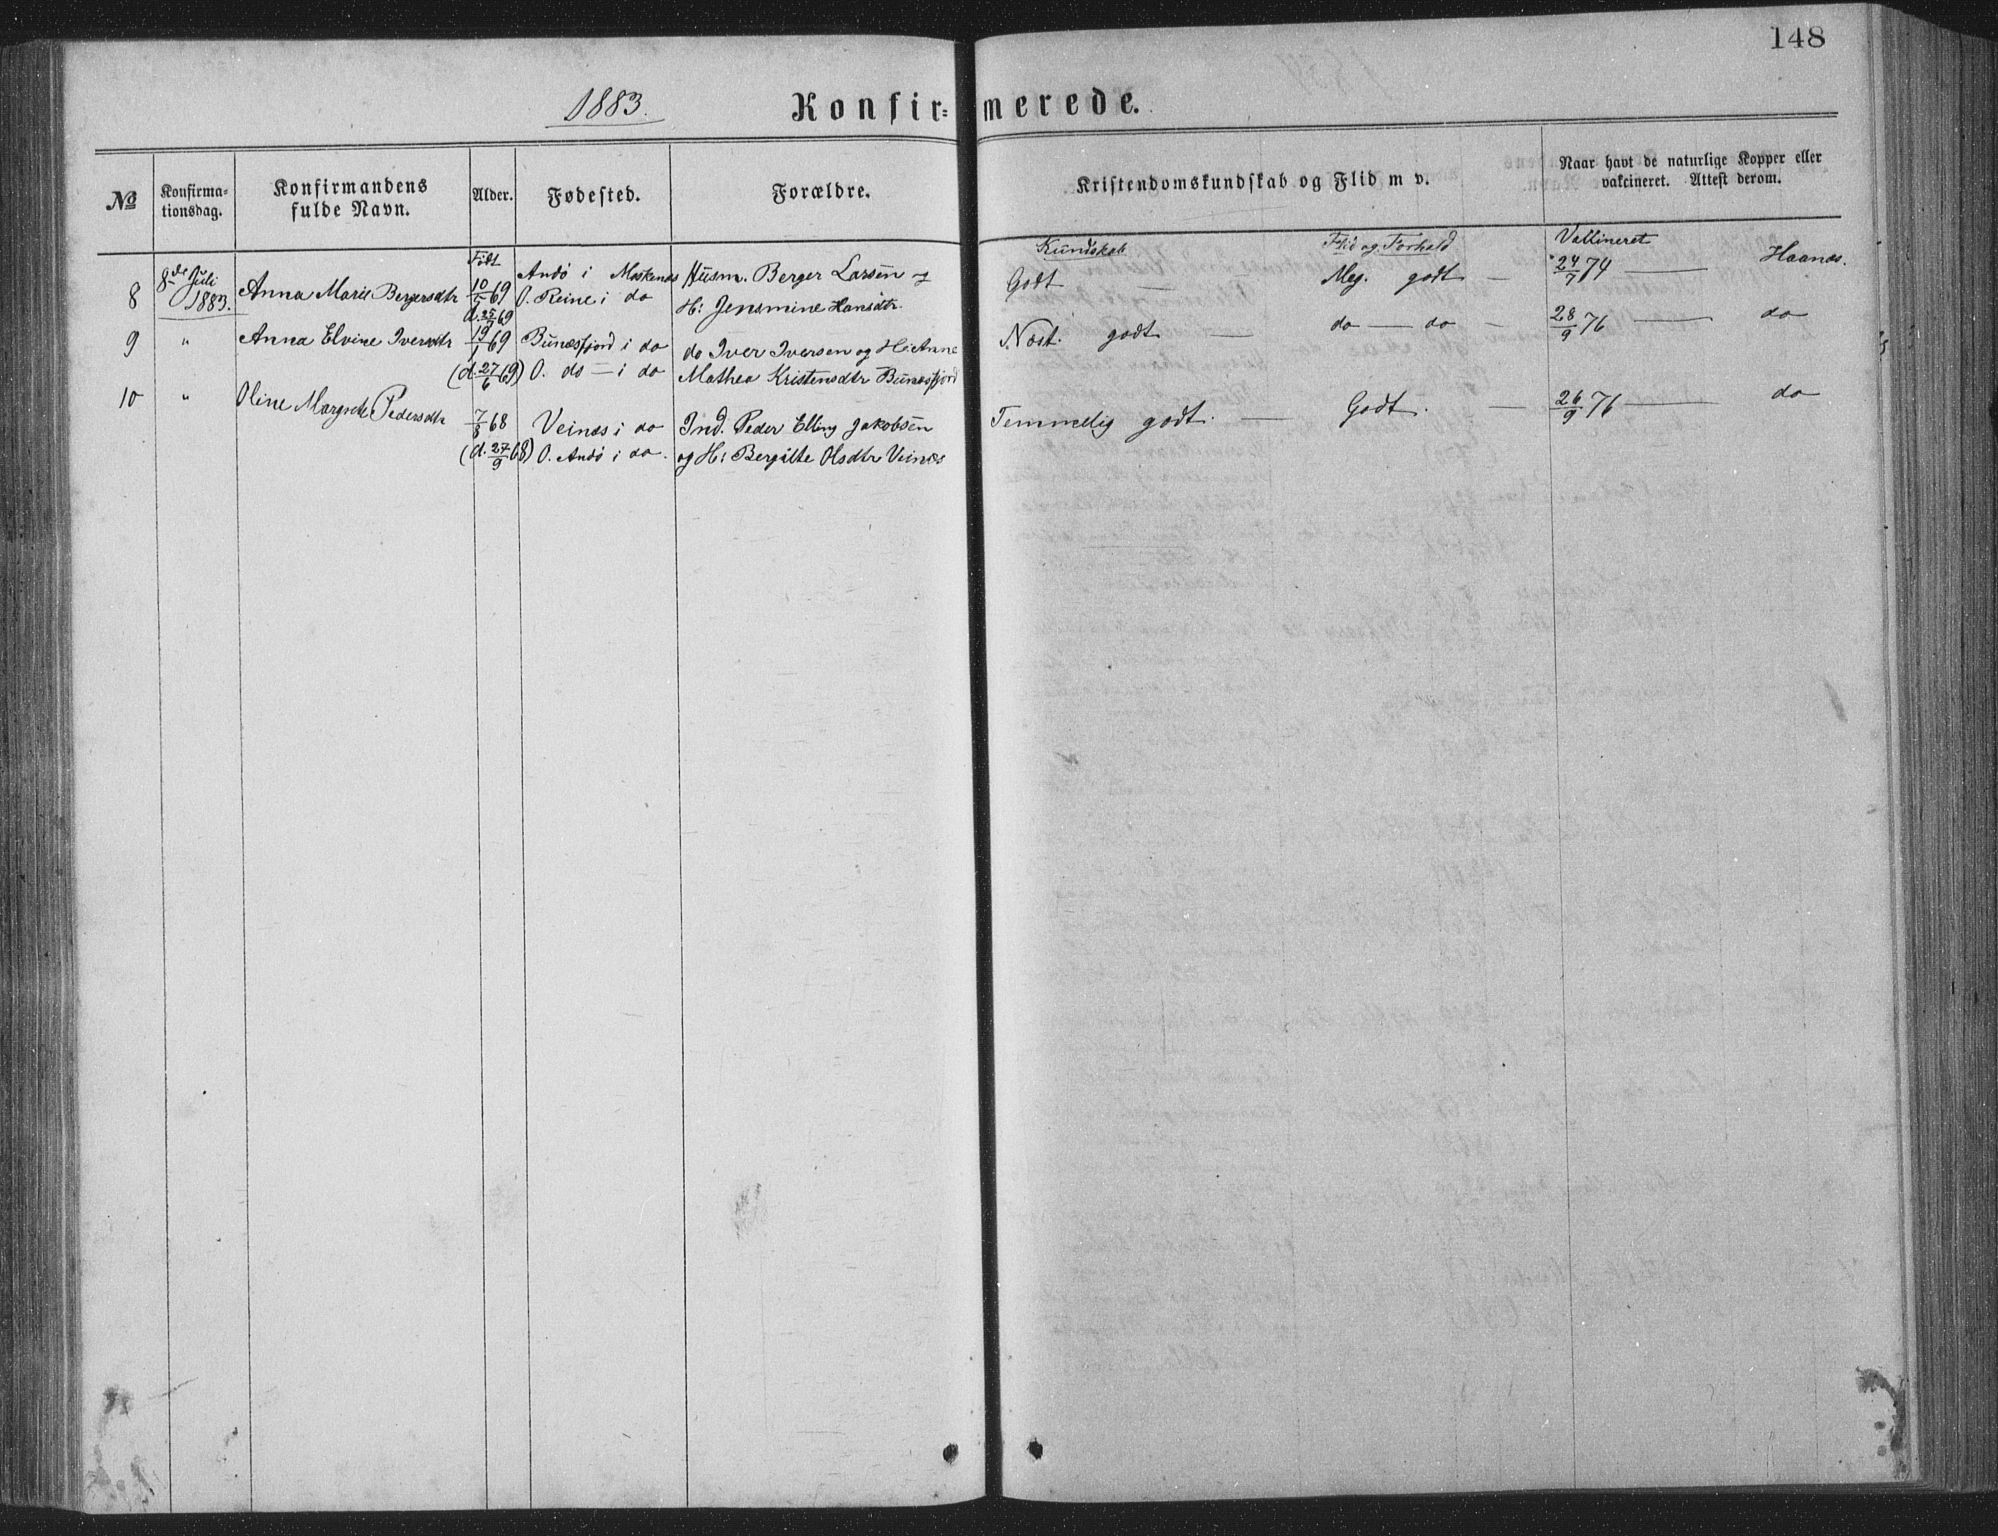 148
1883. Konfir= merede.
№ Konfirma-tionsdag. Konfirmandens fulde Navn. Alder. Fødested. Forældre. Kristendomskundskab og Flid m v. Naar havt de naturlige Kopper eller vakcineret. Attest derom.
Født Kundskab Flid og Forhold
8 8de Juli 1883. Anna Marie Bergersdtr 10/5 69 Andö i Moskenes Husm. Berger Larsen og Godt — Meg. godt — 24/7 74 — Haanæs.
d. 25/6 69 O. Reine i do H: Jensmine Hansdtr.
9 " Anna Elvine Iversdtr 19/1 69 Bunæsfjord i do do Iver Iversen og H: Anne Næst. godt — do — do — 28/9 76 — do
(d. 27/6 69) O. do — i do Mathea Kristensdtr Bunæsfjord
10 " Oline Margrete Pedersdtr 7/8 68 Veinæs i do Ind. Peder Elling Jakobsen Temmelig godt. — Godt. — 26/9 76 — do
(d. 27/9 68) O. Andö i do. og H: Bergitte Olsdtr Veinæs